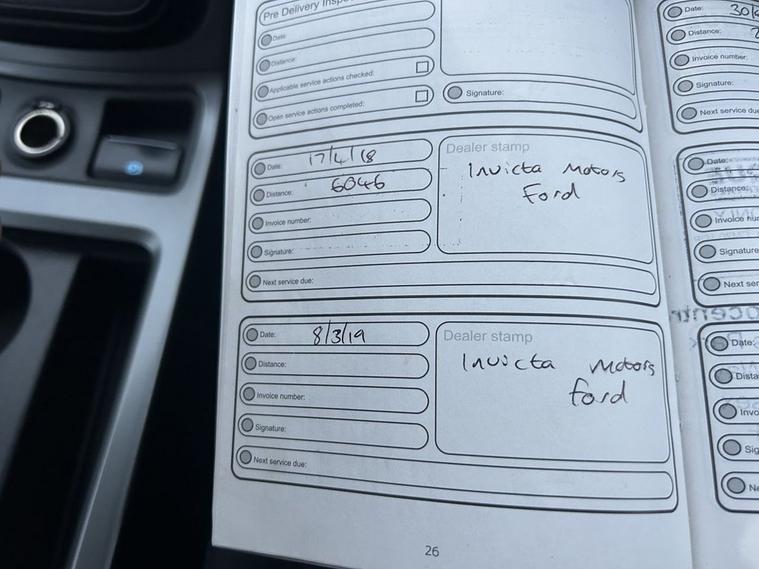 Pre Delivery
Date:
Distance:
Applicable service actions checked:
Open service actions completed:
Signature:
Date: 17/4/18
Distance: 6046
Invoice number:
Signature:
Next service due:
Dealer stamp
Invicta Motors
Ford
Date: 8/3/19
Distance:
Invoice number:
Signature:
Next service due:
Dealer stamp
Invicta Motors
Ford
26
Date: 30/
Distance:
Invoice number:
Signature:
Next service du
Date:
Distance:
Invoice nu
Signature
Next ser
Date:
Dista
Invo
Sig
Ne